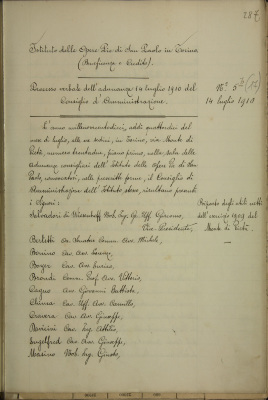 287
Istituto delle Opere Pie di San Paolo in Torino
(Beneficenza e Credito).
Processo verbale dell'adunanza 14 luglio 1910 del
Consiglio di Amministrazione.
N.º 5
14 luglio 1910
L'anno millenovecentodieci, addì quattordici del
mese di luglio, alle ore sedici, in Torino, via Monte di
Pietà, numero trentadue, piano primo, nella sala delle
adunanze consigliari dell'Istituto delle Opere Pie di San
Paolo, convocatosi, nelle prescritte forme, il Consiglio di
Amministrazione dell'Istituto stesso, risultano presenti
i Signori:
Riparto degli utili netti
dell'esercizio 1909 del
Monte di Pietà.
Salvadori di Wiesenhoff Nob. Ing. Gr. Uff. Giacomo,
Vice Presidente,
Barletti Comm. Avv. Michele,
Bornino Cav. Avv. Lorenzo,
Cav. Avv.
Brondi Comm. Prof. Avv. Vittorio,
Avv. Giovanni Battista,
Chiesa Cav. Uff. Avv. Camillo,
Cravera Cav. Avv. Giuseppe,
Cav. Ing. Attilio,
Cav. Avv. Giuseppe,
Nob. Ing.